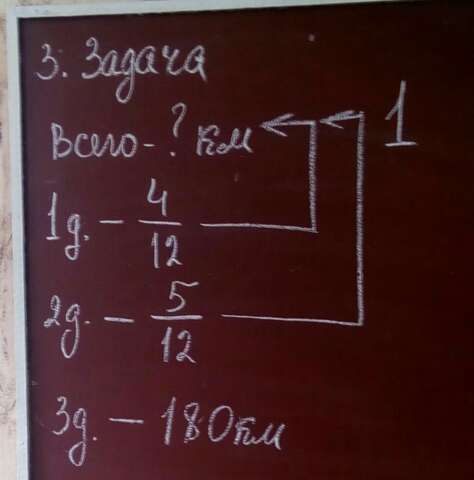 3. Задача
Всего - ? км
1
1д. - 4/12
2д. - 5/12
3д. - 180км